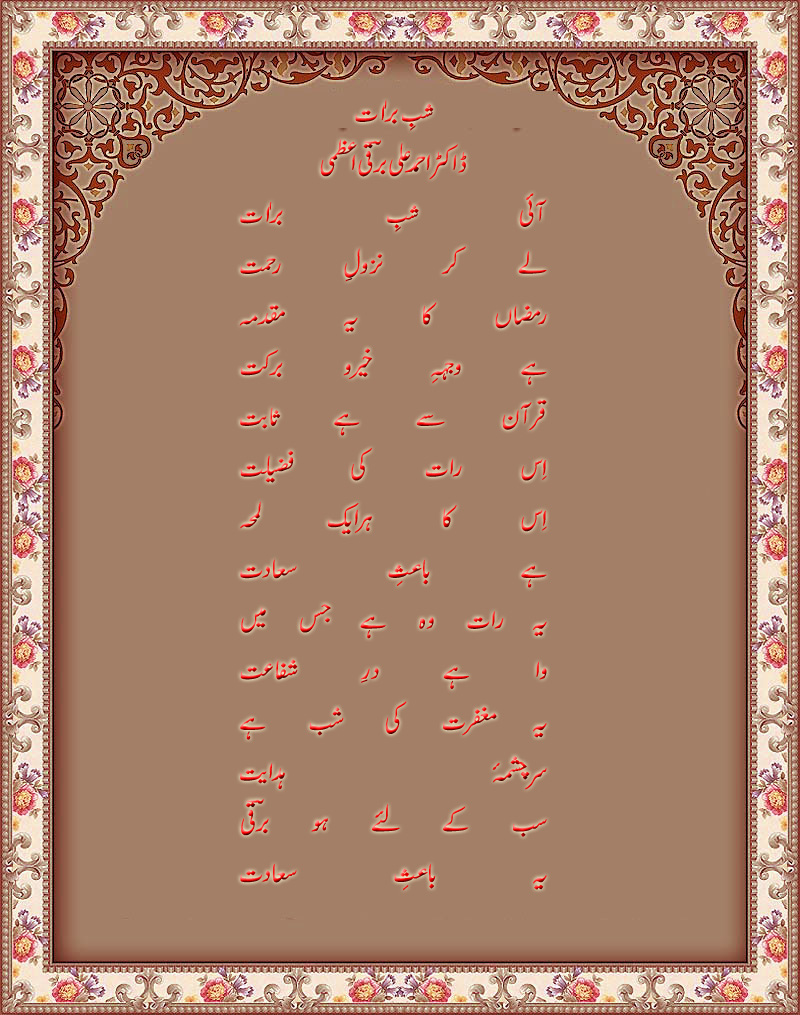 شبِ برات
ڈاکٹر احمد علی برقی اعظمی
آئی شبِ برات
لے کر نزولِ رحمت
رمضاں کا یہ مقدمہ
ہے وجہہِ خیرو برکت
قرآن سے ہے ثابت
اِس رات کی فضیلت
اِس کا ہرایک لمحہ
ہے باعثِ سعادت
یہ رات وہ ہے جس میں
وا ہے درِ شفاعت
یہ مغفرت کی شب ہے
سرچشمۂ ہدایت
سب کے لئے ہو برقی
یہ باعثِ سعادت